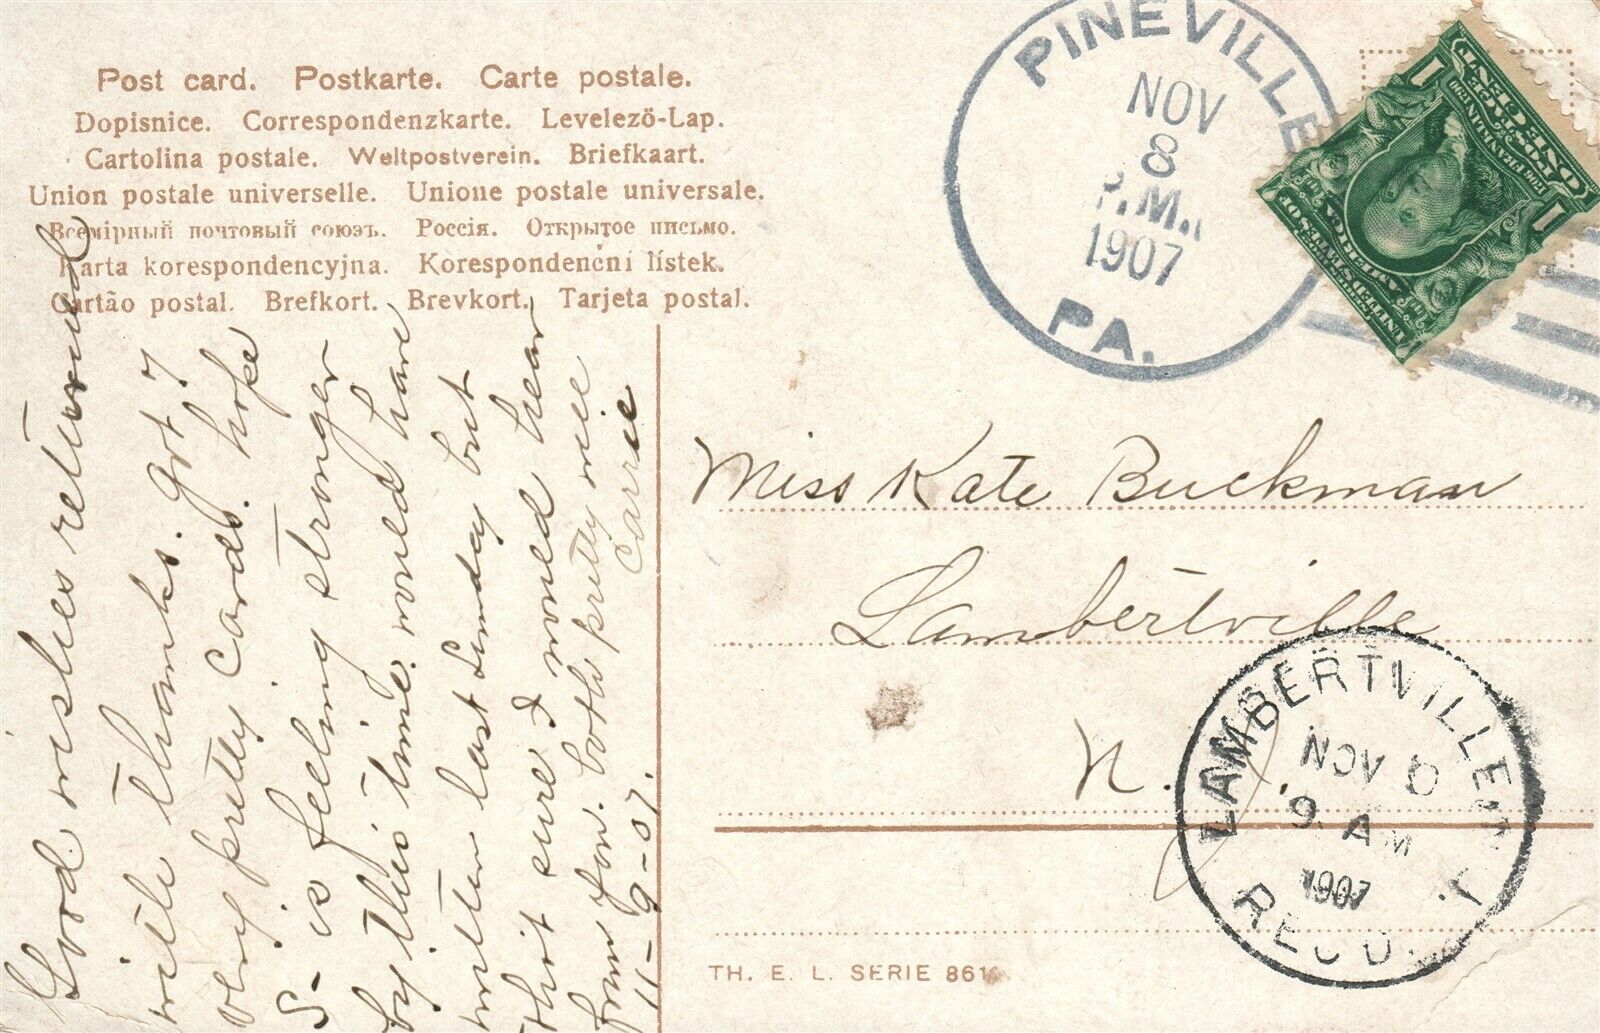 Post card. Postkarte. Carte postale.
Dopisnice. Correspondenzkarte. Levelező-Lap.
Cartolina postale. Weltpostverein. Briefkaart.
Union postale universelle. Unione postale universale.
Всемірный почтовый союзъ. Россія. Открытое письмо.
Karta korespondencyjna. Korespondenční lístek.
Cartão postal. Brefkort. Brevkort. Tarjeta postal.
Good wishes returned
with thanks. got 7
very pretty cards. hope
S- is feeling stronger
by this time. would have
written last Sunday but
that sure I would hear
from you. both pretty nice
11-9-07. Carrie
PINEVILLE
NOV
8
P.M.
1907
PA.
UNITED STATES OF
AMERICA
1706 FRANKLIN 1790
POSTAGE
ONE CENT
1 1
Miss Kate Buckman
Lambertville
N. J.
LAMBERTVILLE
NOV
9 AM
1907
REC'D.
TH. E. L. SERIE 861